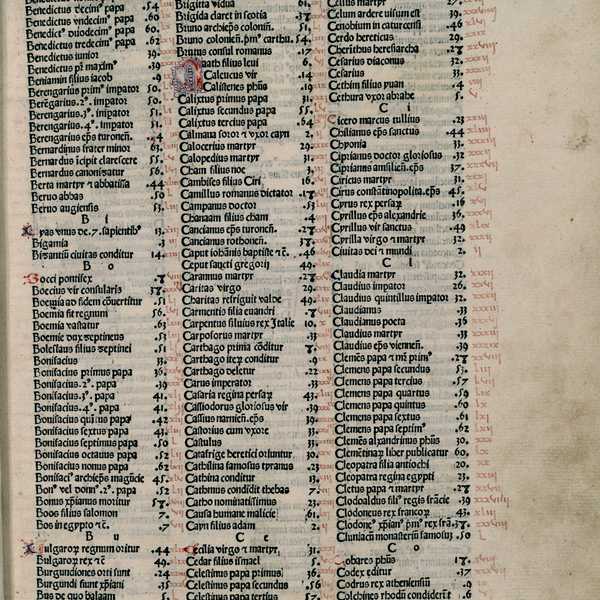 Benedictus decim⁹ papa .54
Benedictus vndecim⁹ papa .60
Benedict⁹ duodecim⁹ papa 60
Benedictus tredecim⁹ papa 62.
Benedictus iunior .39
Benedictus pͥ maxim⁹ .39
Beniamin filius iacob .9
Berengarius prim⁹ impator 50.
Berēgarius.2⁹. impator 50.
Berengarius.3⁹. impator 51.
Berengarius.4⁹. impator 51.
Berengarius ep̄s turonen̄. .44
Bernardinus frater minor 63.
Bernardus īcipit clarescere 55.
Bernardus canonizatur 56.
Berta martyr ⁊ abbatissa .44
Beruo abbas 50.
Beruo augiensis 53.
B i
yas vnus de.7. sapientib⁹ 13.
Bigamia .3
Bizantiū ciuitas conditur 14.
B o
Bocci pontifex .27
Boecius vir consularis 37.
Boemia ad fidem cōuertitur 51.
Boemia fit regnum 56.
Boemia vastatur 63.
Boemie dax septinneus 53.
Boleslaus filius septinnei 51.
Bonifacius 33.
Bonifacius primus papa 34.
Bonifacius.2⁹. papa .39
Bonifacius.3⁹. papa 41.
Bonifacius.4⁹. papa 41.
Bonifacius quītus papa .42
Bonifacius sextus papa .43
Bonifacius septimus papa 50
Bonifacius octauus papa 52.
Bonifacius nonus papa 62.
Bonifaci⁹ archiep̄s magūcie 45.
Bon⁹ vel donn⁹.2⁹. papa .52
Bonus xp̄ianus moritur 57.
Boos filius salomon .7
Bos in egypto ⁊ē .7
B u
Bulgaroꝝ regnum oritur .44
Bulgaroꝝ rex ⁊ē .49
Burgundiones orti sunt .24
Burgundi fiunt xp̄iani .35
Bus de quo balaam 5.
Brigitta vidua 61.
Brigida claret in scotia .37
Bruno archiep̄s colonieñ. 51.
Bruno colonieñ.pm⁹ carthu. 54.
Brutus consul romanus 17.
Caath filius leui 6.
Caleucus vir 14.
Calisenes ph̄us .19
Calixtus primus papa 31.
Calixtus secundus papa 55.
Calixtus tercius papa .64
Calmana soror ⁊ vxor cayn 2.
Calocerius martyr 29.
Calopedius martyr 31.
Cham filius noe 3.
Cambises filius Ciri 16.
Camillus romanus dictator .17
Campanus doctor 53.
Chanaam filius cham .4
Cancianus ep̄s turonen̄. .27
Cancianus rothonen̄. 37.
Caput ioh̄anis baptiste ⁊ē. .46
Caput sancti gregorij 49.
Carannus martyr .27
Caritas virgo 29.
Charitas refriguit valde 49.
Carmentis filia euandri .7
Carpentus filiuius rex Italie 10.
Carpoforus martyr .33
Carthago prima cōditur .7
Carthago iteꝝ conditur .9
Carthago deletur .22
Carus imperator .33
Casaria regina persaꝝ .43
Cassiodorus gloriosus vir .39
Cassius narnien̄.ep̄s .39
Castorius cum vxore .33
Castulus .33
Catafrige heretici oriuntur 30.
Cathilina famosus tyranus .23
Cathina conditur 13.
Cathmus conditor thebas 7.
Catho nominatissimus 23.
Causa humane malicie 61.
Cayn filius adam 2.
C e
Cecilia virgo ⁊ martyr 31.
Cedar filius ismael 5.
Celestinus papa primus 36.
Celestinus papa secundus .56
Celestinus papa tertius 57.
Celsus martyr .27
Celum ardere uisum est 39.
Cenobium in caturcensi .46
Cerdo hereticus 29.
Cherithus heresiarcha .27
Cesarius diaconus 32.
Cesarius 33.
Cethim filius yuan .4
Cethura vxor abrahe 5.
C i
Cicero marcus tullius .23
Chilianus ep̄s sanctus .44
Chyonia .33
Ciprianus doctor gloriosus .32
Ciprianus ansilien̄.ep̄s 37.
Ciricus martyr .31
Cirus constātinopolita.ep̄s 45.
Cyrus rex persaꝝ .16
Cyrillus ep̄s alexandrie 36.
Cyrillus vir sanctus .49
Cyrilla virgo ⁊ martyr 32.
Ciuitas dei ⁊ mundi 2.
C l
Claudia martyr 32.
Claudius impator 26.
Claudius quintillus impator 32.
Claudianus .33
Claudianus poeta .36
Claudius martyr .33
Claudius ep̄s viennen̄. .39
Clemēs papa ⁊ m̄ prim⁹ .27
Clemens papa secundus 53.
Clemens papa tercius .57
Clemens papa quartus .59
Clemens papa quintus .60
Clemens papa sextus .61
Clemens papa septim⁹ 62.
Clemēs alxandrinus ph̄us 30.
Clementinaꝝ liber publicatur 60.
Cleopatra filia antiochi 20.
Cleopatra regina egypti 23.
Cletus papa ⁊ martyr .27
Clodoaldus fili⁹ regis frācie .39
Clodoneus rex francoꝝ .43
Clodone⁹ xp̄ian⁹ pm⁹ rex frā.37.
Cluniacū monasteriū famosū .50
C o
Cobares ph̄us 17.
Codex editur .37
Codrus rex atheniensiū 9.
Colchines rhodū condiderūt 6.